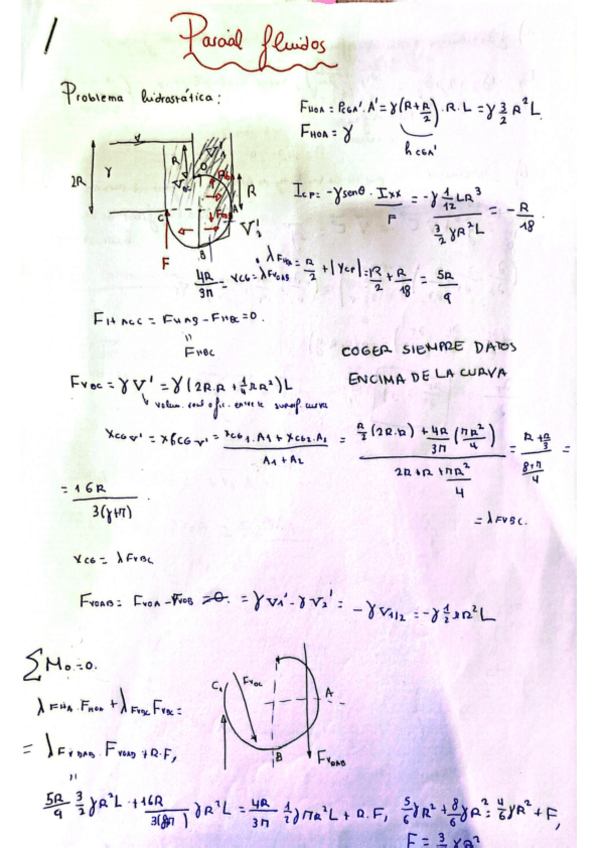 1
Parcial fluidos
Problema hidrostática:
F_HOA = P_CGA' · A' = γ(R + R/2) · R · L = γ 3/2 R²L
F_HOA = γ
h_CGA'
2R
γ
R
R
O
A
C
B
F
V_2'
I_CP = -γ senθ · I_xx / F = -γ 1/12 L R³ / (3/2 γR²L) = -R/18
λ_FHA = R/2 + |Y_CP| = R/2 + R/18 = 5R/9
4R/3π = x_CG = λ_FVOAB
F_HACC = F_HAB - F_HBC = 0.
"
F_HBC
COGER SIEMPRE DATOS
ENCIMA DE LA CURVA
F_VBC = γ V' = γ(2R·R + 1/4 πR²)L
x_CGV' = x_CG1·A1 + x_CG2·A2 / (A1 + A2) = (R/3 (2R·R) + 4R/3π (πR²/4)) / (2R + R + πR²/4) = (R + R/3) / ((8+π)/4) =
= 16R / 3(8+π)
= λ_FVBC.
x_CG = λ_FVBC
F_VOAB = F_VOA - F_VOB = 0. = γV_1' - γV_2' = -γV_1/2 = -γ 1/2 πR²L
∑M_O = 0.
C
F_VBC
A
B
F_VOAB
λ_FHA · F_HOA + λ_FVBC F_VBC =
= λ_FVOAB · F_VOAB + R·F,
"
5R/9 3/2 γR²L + 16R/3(8π) γR²L = 4R/3π 1/2 γπR²L + R·F, 5/6 γR² + 8/6 γR² = 4/6 γR² + F,
F = 3/2 γR²